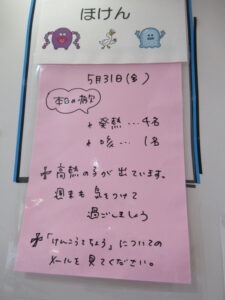 ほけん
5月31日(金)
本日の欠
発熱…4名
咳…1名
高熱の子が出ています。
週末も気をつけて
過ごしましょう
「けんこうきちょう」についての
メールを見てください。